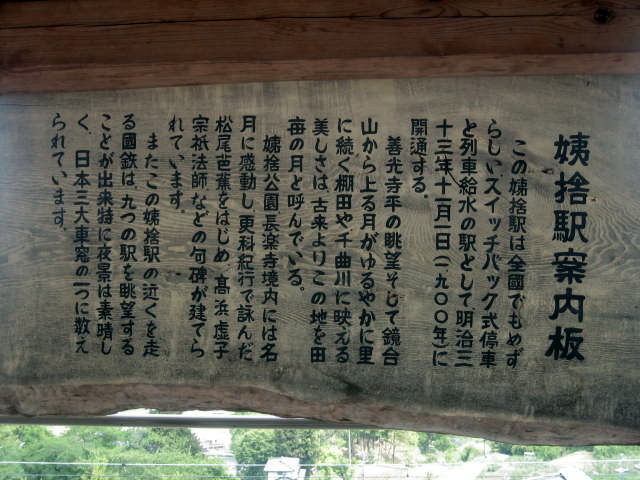 姨捨駅案内板
この姨捨駅は全国でもめず
らしいスイッチバック式停車
と列車給水の駅として明治三
十三年十一月一日(一九〇〇年)に
開通する。
善光寺平の眺望そして鏡台
山から上る月がゆるやかに里
に続く棚田や千曲川に映える
美しさは、古来よりこの地を田
毎の月と呼んでいる。
姨捨公園長楽寺境内には名
月に感動し、更科紀行で詠んだ
松尾芭蕉をはじめ、高浜虚子
宗祇法師などの句碑が建てら
れています。
またこの姨捨駅の近くを走
る國鉄は、九つの駅を眺望する
ことが出来特に夜景は素晴し
く、日本三大車窓の一つに数え
られています。